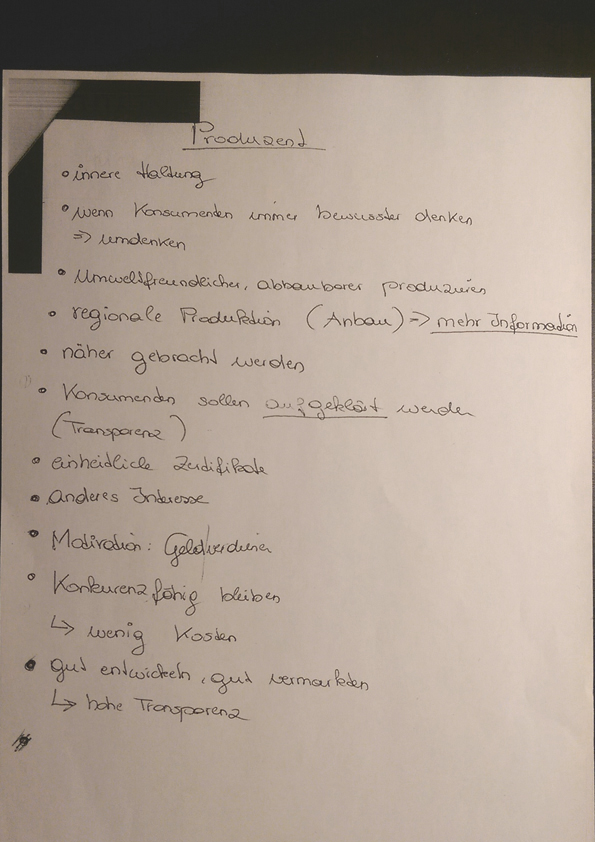 Produzent
• innere Haltung
• wenn Konsumenten immer bewusster denken
=> umdenken
• Umweltfreundlicher, abbaubarer produzieren
• regionale Produktion (Anbau) => mehr Information
• näher gebracht werden
• Konsumenten sollen aufgeklärt werden
(Transparenz)
• einheitliche Zertifikate
• anderes Interesse
• Motivation: Geld verdienen
• Konkurenzfähig bleiben
↳ wenig Kosten
• gut entwickeln, gut vermarkten
↳ hohe Transparenz